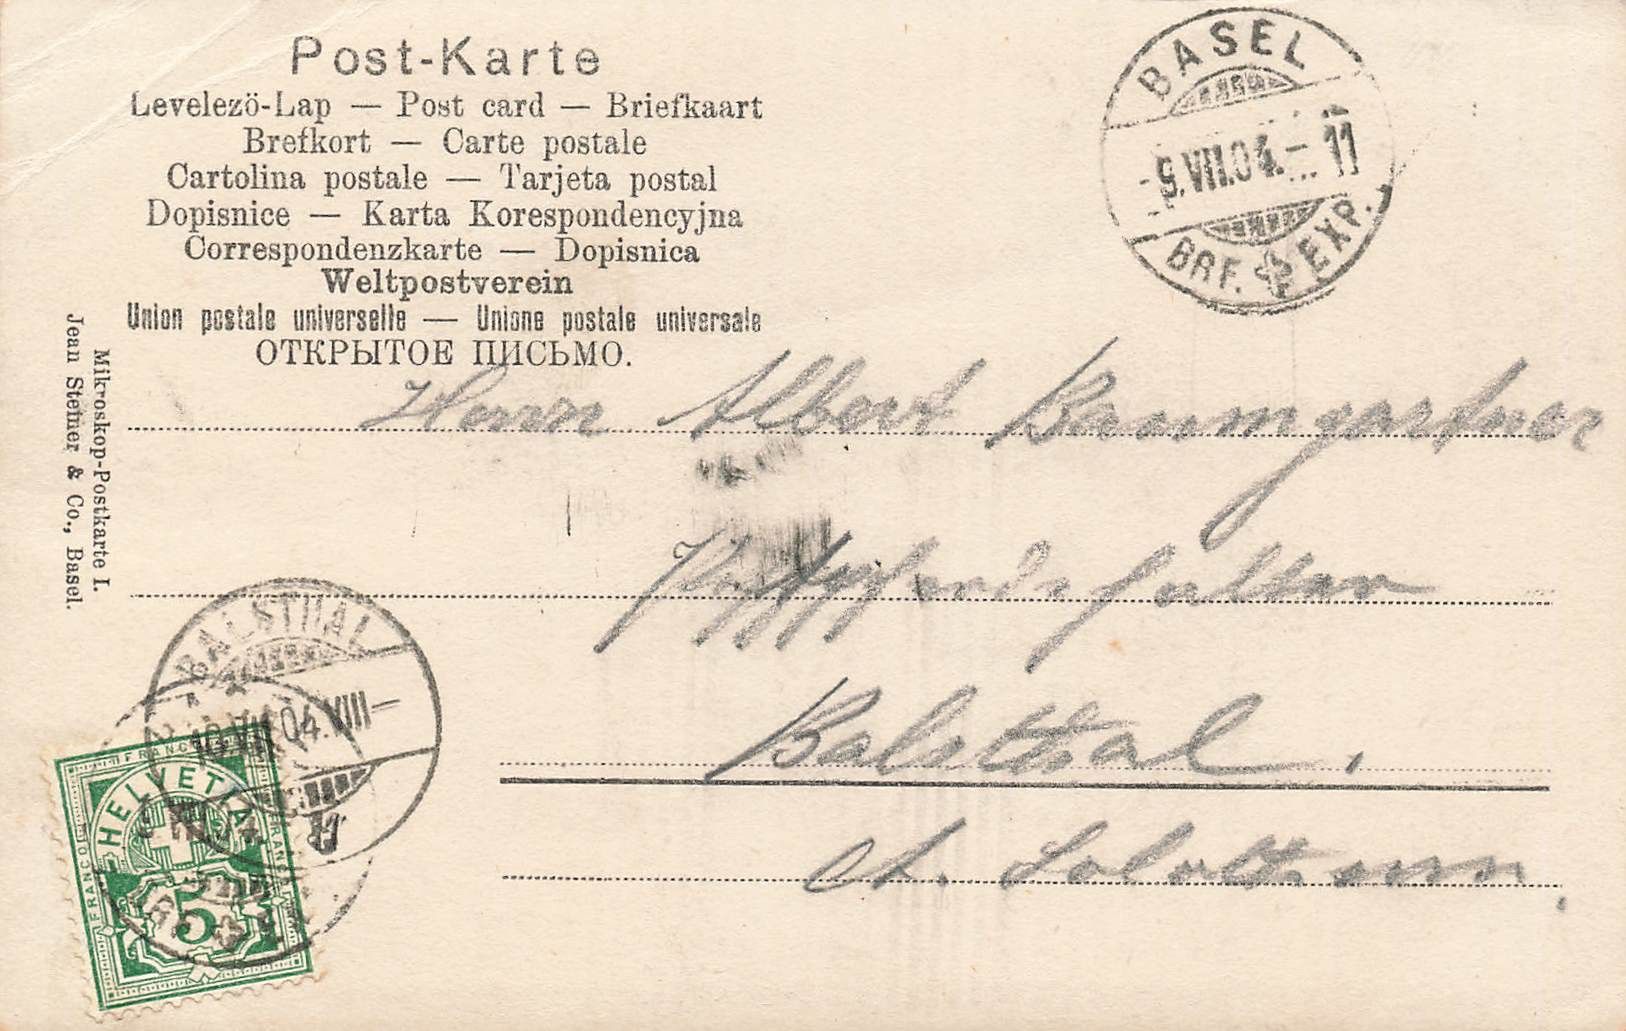 Post-Karte
Levelezö-Lap — Post card — Briefkaart
Brefkort — Carte postale
Cartolina postale — Tarjeta postal
Dopisnice — Karta Korespondencyjna
Correspondenzkarte — Dopisnica
Weltpostverein
Union postale universelle — Unione postale universale
ОТКРЫТОЕ ПИСЬМО.
BASEL
9.VII.04.–11
BRF. EXP.
Mikroskop-Postkarte I.
Jean Steiner & Co., Basel.
Herrn Albert Baumgartner
Balsthal.
Ct. Solothurn
BALSTHAL
10.VII.04.VIII–
FRANCO
HELVETIA
FRANCO
FRANCO
5